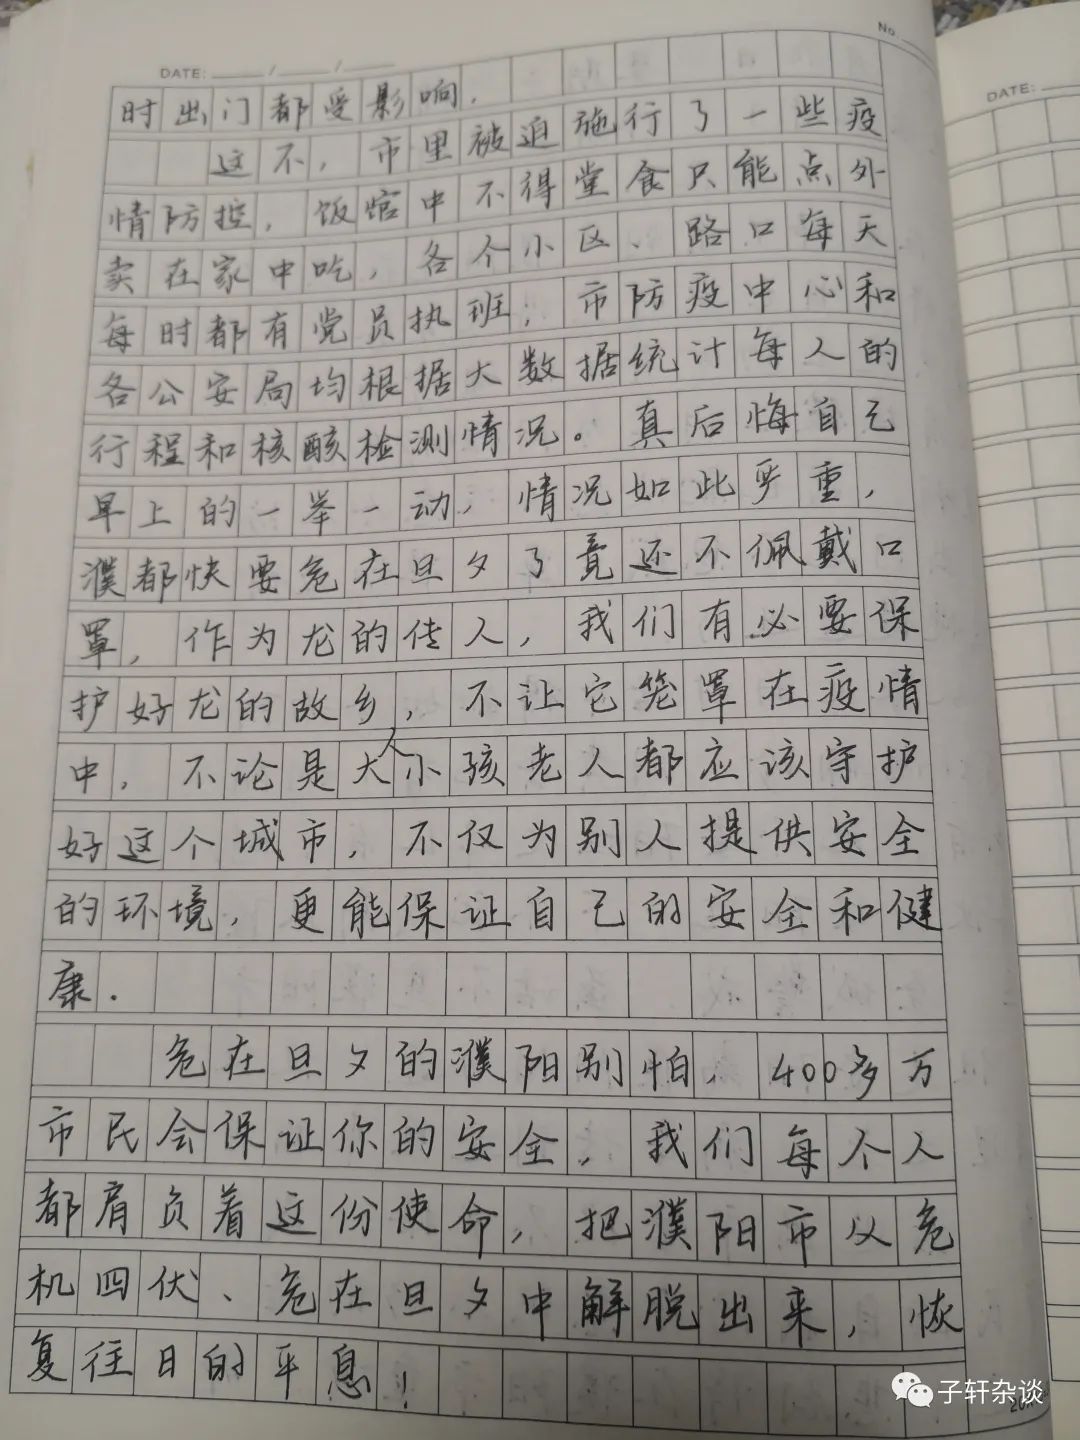 No.
DATE: / /
DATE:
时出门都受影响.
这不,市里被迫施行了一些疫
情防控,饭馆中不得堂食只能点外
卖在家中吃,各个小区、路口每天
每时都有党员执班;市防疫中心和
各公安局均根据大数据统计每人的
行程和核酸检测情况。真后悔自己
早上的一举一动,情况如此严重,
濮都快要危在旦夕了竟还不佩戴口
罩,作为龙的传人,我们有必要保
护好龙的故乡,不让它笼罩在疫情
中,不论是大人小孩老人都应该守护
好这个城市,不仅为别人提供安全
的环境,更能保证自己的安全和健
康.
危在旦夕的濮阳别怕,400多万
市民会保证你的安全,我们每个人
都肩负着这份使命,把濮阳市从危
机四伏、危在旦夕中解脱出来,恢
复往日的平息!
子轩杂谈